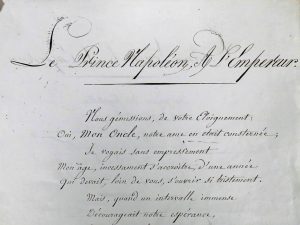 Le Prince Napoléon, A l'Empereur.
Nous gémissions, de votre Eloignement;
Oui, Mon Oncle, notre ame en étoit consternée;
Je voyais sans empressement
Mon âge, incessament s'accroître, d'une année
Qui devait, loin de vous, s'ouvrir si tristement.
Mais, quand un intervalle immense
Décourageait notre espérance,